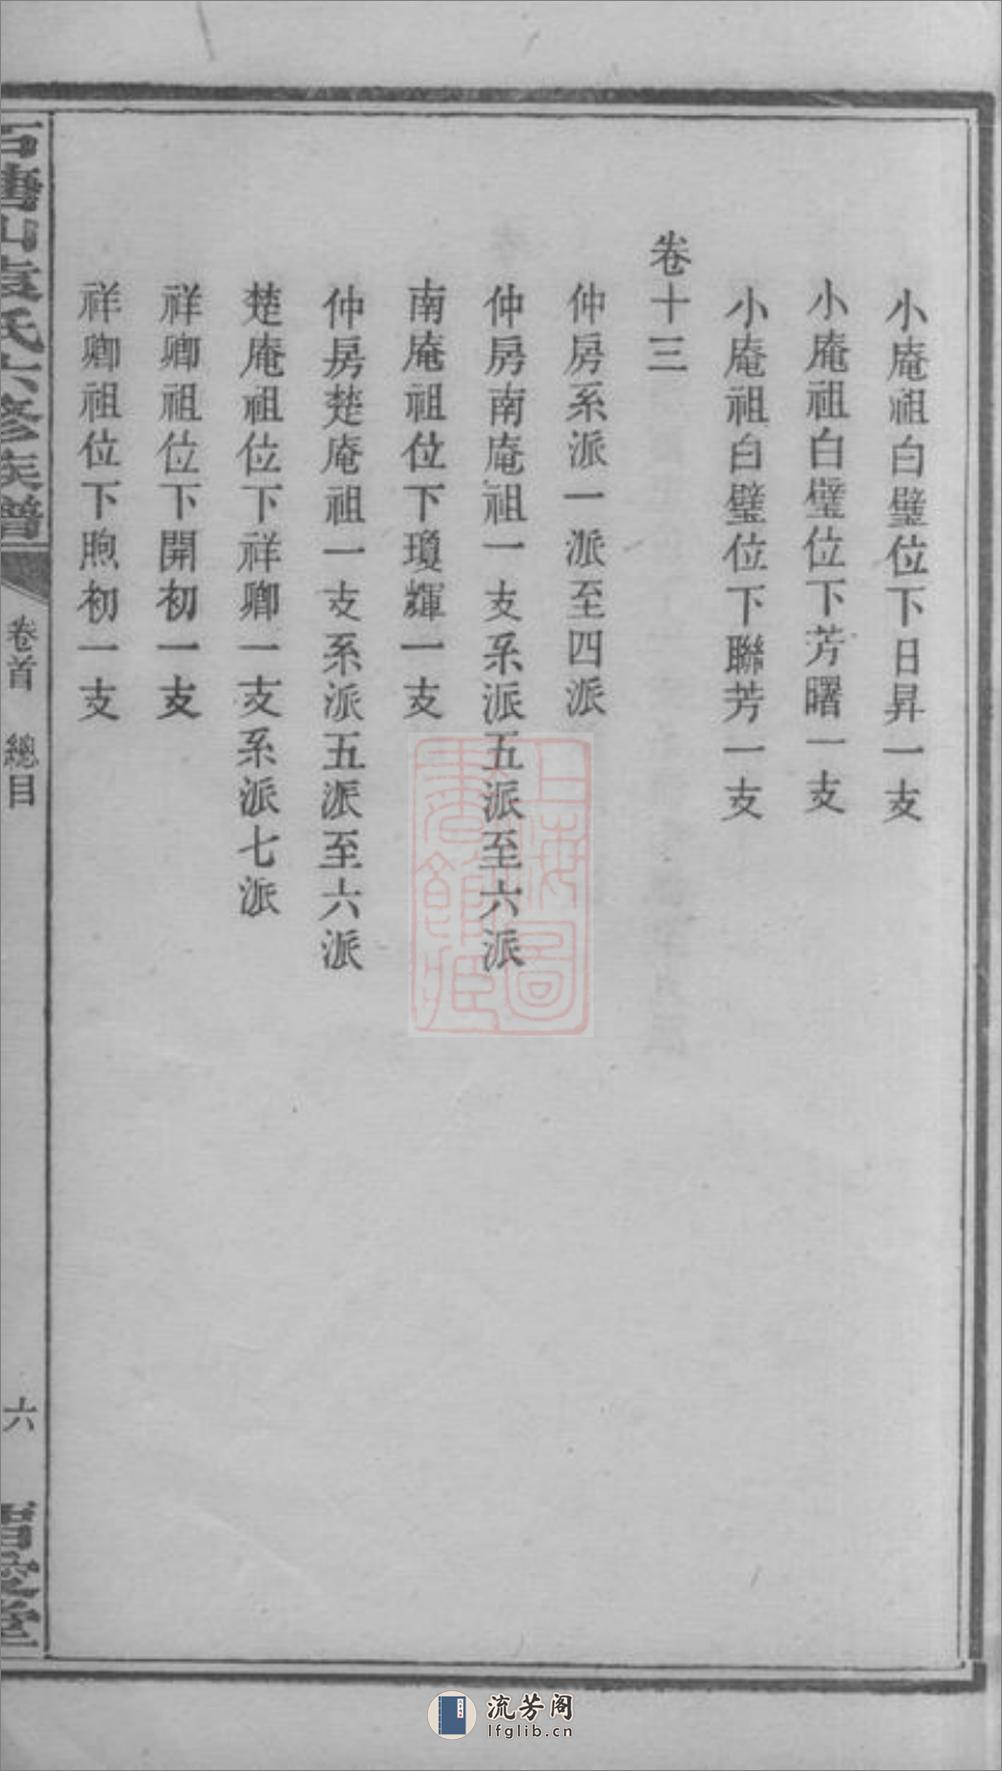 小庵祖白璧位下日昇一支
小庵祖白璧位下芳曙一支
小庵祖白璧位下聯芳一支
卷十三
仲房系派一派至四派
仲房南庵祖一支系派五派至六派
南庵祖位下瓊輝一支
仲房楚庵祖一支系派五派至六派
楚庵祖位下祥卿一支系派七派
祥卿祖位下開初一支
祥卿祖位下煦初一支
石塘山袁氏六修族譜
卷首 總目
六
堂
上海圖書館藏
流芳阁
lfglib.cn